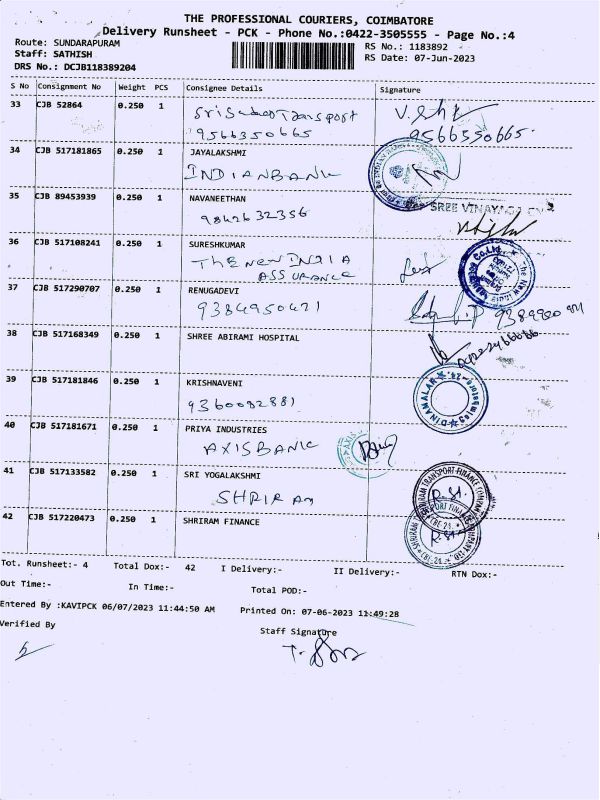 THE PROFESSIONAL COURIERS, COIMBATORE
Delivery Runsheet - PCK - Phone No.:0422-3505555 - Page No.:4
Route: SUNDARAPURAM
RS No.: 1183892
Staff: SATHISH
RS Date: 07-Jun-2023
DRS No.: DCJB118389204
S No Consignment No Weight PCS Consignee Details Signature
33 CJB 52864 0.250 1
9566350665
9566350665.
34 CJB 517181865 0.250 1 JAYALAKSHMI
INDIANBANK
35 CJB 89453939 0.250 1 NAVANEETHAN
SREE VINAYAGA
9842632356
36 CJB 517108241 0.250 1 SURESHKUMAR
THE NEW INDIA
ASSURANCE
37 CJB 517290707 0.250 1 RENUGADEVI
9384950421
38 CJB 517168349 0.250 1 SHREE ABIRAMI HOSPITAL
39 CJB 517181846 0.250 1 KRISHNAVENI
DINAMALAR
9360082881
40 CJB 517181671 0.250 1 PRIYA INDUSTRIES
AXIS BANK
41 CJB 517133582 0.250 1 SRI YOGALAKSHMI
SHRIRAM
42 CJB 517220473 0.250 1 SHRIRAM FINANCE
Tot. Runsheet:- 4 Total Dox:- 42 I Delivery:- II Delivery:- RTN Dox:-
Out Time:- In Time:- Total POD:-
Entered By :KAVIPCK 06/07/2023 11:44:50 AM Printed On: 07-06-2023 11:49:28
Verified By Staff Signature